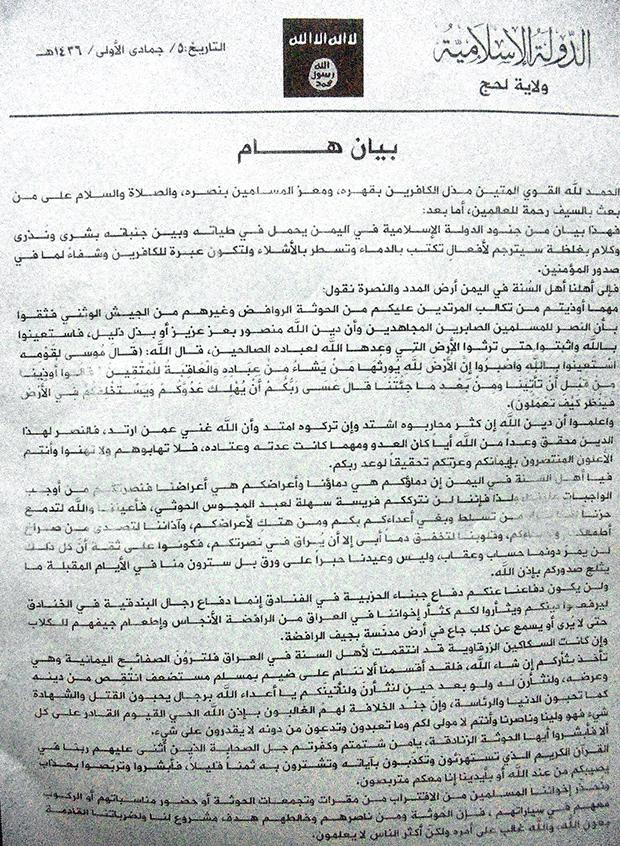 الدولة الإسلامية
ولاية لحج
لا إله إلا الله
الله
رسول
محمد
التاريخ: ٥/ جمادى الأولى/ ١٤٣٦هـ
بيان هـــام
الحمد لله القوي المتين مذل الكافرين بقهره، ومعز المسلمين بنصره، والصلاة والسلام على من
بعث بالسيف رحمة للعالمين، أما بعد:
فهذا بيان من جنود الدولة الإسلامية في اليمن يحمل في طياته وبين جنبقه بشرى ونذرى
وكلام بغلظة سيترجم لأفعال تكتب بالدماء وتسطر بالأشلاء ولتكون عبرة للكافرين وشفاءً لما في
صدور المؤمنين.
فإلى أهلنا أهل السنة في اليمن أرض المدد والنصرة نقول:
مهما أوذيتم من تكالب المرتدين عليكم من الحوثة الروافض وغيرهم من الجيش الوثني فثقوا
بأن النصر للمسلمين الصابرين المجاهدين وأن دين الله منصور بعز عزيز أو بذل ذليل، فاستعينوا
بالله واثبتوا حتى ترثوا الأرض التي وعدها الله لعباده الصالحين، قال الله: (قال موسى لقومه
استعينوا بالله واصبروا إنَّ الأرض لله يورثها من يشاء من عباده والعاقبة للمتقين * قالوا أوذينا
من قبل أن تأتينا ومن بعد ما جئتنا قال عسى ربكم أن يُهلك عدوكم ويستخلفكم في الأرض
فينظر كيف تعملون).
واعلموا أن دين الله إن كثر محاربوه اشتد وإن تركوه امتد وأن الله غني عمن ارتد، فالنصر لهذا
الدين محقق وعدا من الله أيا كان العدو ومهما كانت عدته وعتاده، فلا تهابوهم ولا تهنوا وأنتم
الأعلون المنتصرون بإيمانكم وعزتكم تحقيقاً لوعد ربكم.
فيا أهل السنة في اليمن إن دماؤكم هي دماؤنا وأعراضكم هي أعراضنا فنصرتكم من أوجب
الواجبات علينا ولذا فإننا لن نترككم فريسة سهلة لعبد المجوس الحوثي، فأعيننا والله لتدمع
حزنا من تسلط وبغي أعداءكم بكم ومن هتك لأعراضكم، وآذاننا لتصدى من صراخ
أطفالكم ونساءكم، وقلوبنا لتخفق دما أبى إلا أن يُراق في نصرتكم، فكونوا على ثقة أن كل ذلك
لن يمر دونما حساب وعقاب، وليس وعيدنا حبراً على ورق بل سترون منا في الأيام المقبلة ما
يثلج صدوركم بإذن الله.
ولن يكون دفاعنا عنكم دفاع جبناء الحزبية في الفنادق إنما دفاع رجال البندقية في الخنادق
ليرفعوا دينكم ويثأروا لكم كثأر إخواننا في العراق من الرافضة الأنجاس وإطعام جيفهم للكلاب
حتى لا يرى أو يسمع عن كلب جاع في أرض مدنّسة بجيف الرافضة.
وإن كانت السكاكين الزرقاوية قد انتقمت لأهل السنة في العراق فلترون الصفائح اليمانية وهي
تأخذ بثأركم إن شاء الله، فلقد أقسمنا ألا ننام على ضيم بمسلم مستضعف انتقص من دينه
وعرضه، ولنثأرن له ولو بعد حين لنثأرن ولنأتينكم يا أعداء الله برجال يحبون القتل والشهادة
كما تحبون الدنيا والرئاسة، وإن جند الخلافة لهم الغالبون بإذن الله الحي القيوم القادر على كل
شيء فهو ولينا وناصرنا وأنتم لا مولى لكم وما تعبدون وتدعون من دونه لا يقدرون على شيء.
ألا فأبشروا أيها الحوثة الزنادقة، يامن شتمتم وكفرتم جل الصحابة الذين أثنى عليهم ربنا في
القرآن الكريم الذي تستهزئون وتكذبون بآياته وتشترون به ثمناً قليلاً، فأبشروا وتربصوا بعذاب
يصيبكم من عند الله أو بأيدينا إنا معكم متربصون.
ونحذر إخواننا المسلمين من الاقتراب من مقرات وتجمعات الحوثة أو حضور مناسباتهم أو الركوب
معهم في سياراتهم، فإن الحوثة ومن ناصرهم وخالطهم هدف مشروع لنا ولضرباتنا القادمة
بعون الله، والله غالب على أمره ولكن أكثر الناس لا يعلمون.